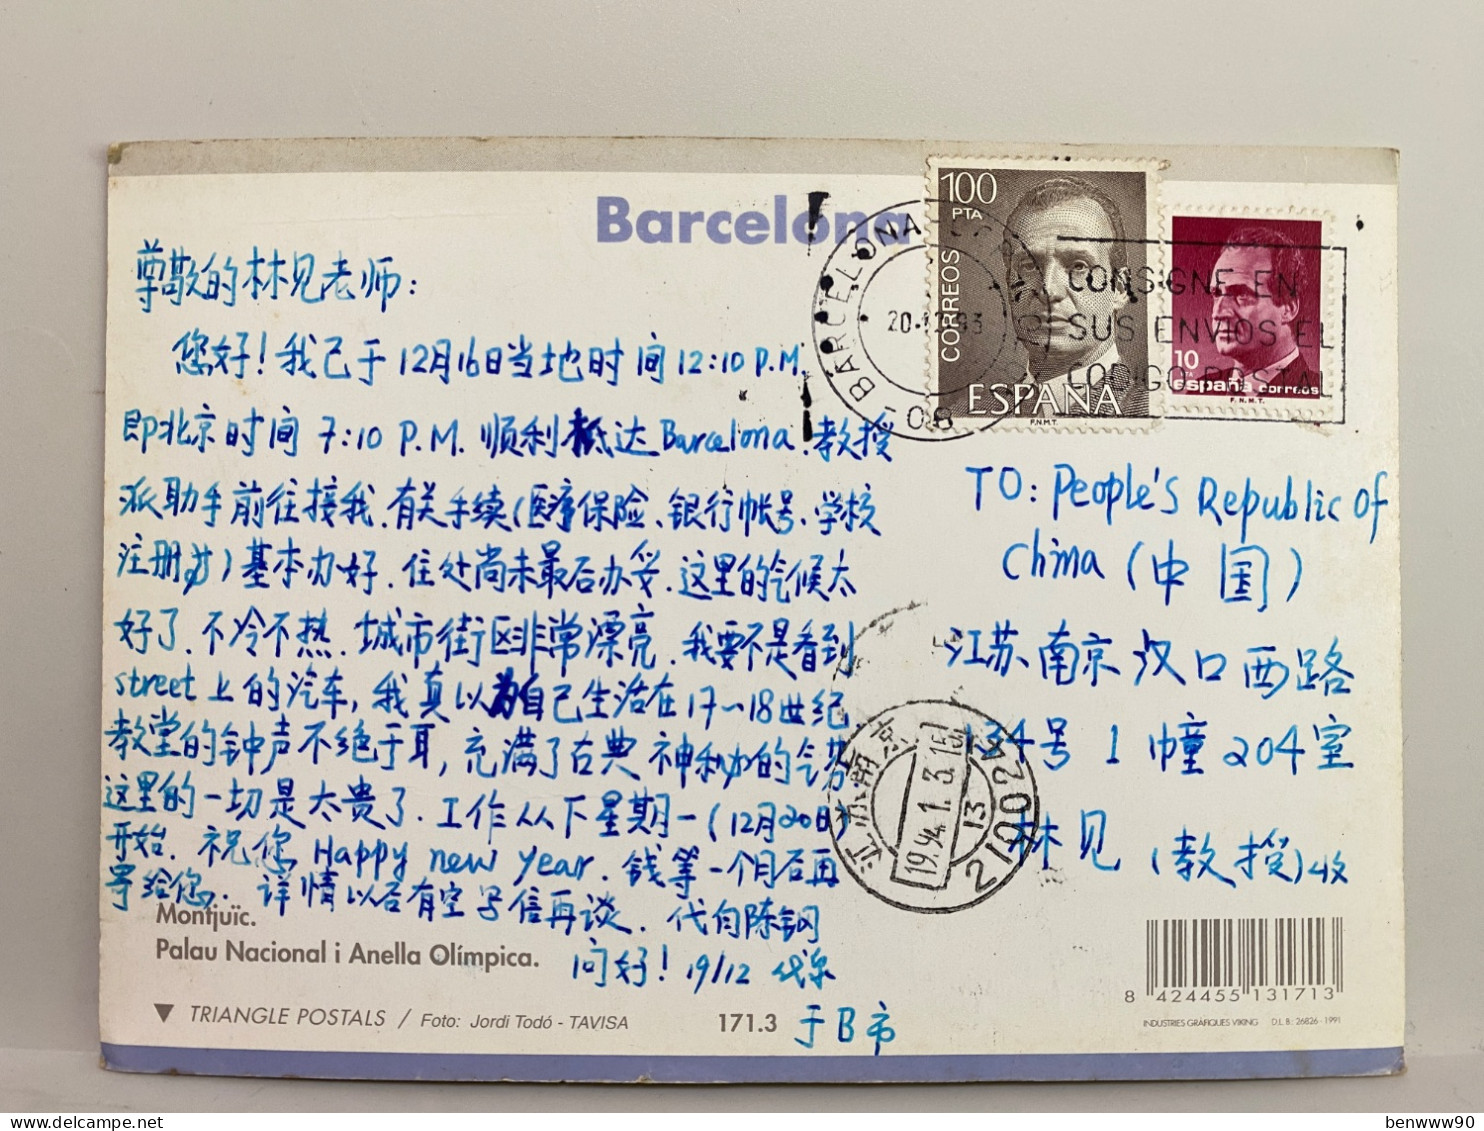 Barcelona
100
PTA
CORREOS
ESPAÑA
F.N.M.T.
10
PTA
españa correos
F.N.M.T.
BARCELONA
08
CONSIGNE EN
SUS ENVIOS EL
CODIGO POSTAL
尊敬的林见老师:
您好!我已于12月16日当地时间12:10 P.M.
即北京时间 7:10 P.M. 顺利抵达Barcelona.教授
派助手前往接我.有关手续(医疗保险、银行帐号、学校
注册等)基本办好.住处尚未最后办妥.这里的气候太
好了.不冷不热.城市街区非常漂亮.我要不是看到
street上的汽车,我真以为自己生活在17-18世纪
教堂的钟声不绝于耳,充满了古典神秘的气氛
这里的一切是太贵了.工作从下星期一(12月20日)
开始.祝您 Happy new year.钱等一个月后再
寄给您.详情以后有空写信再谈.代向陈钢
问好! 19/12
于B市
TO: People's Republic of
China (中国)
江苏南京汉口西路
号 1 幢 204室
林见 (教授)收
江苏南京
1994.1.3.15
13
210024
Montjuïc.
Palau Nacional i Anella Olímpica.
▼ TRIANGLE POSTALS / Foto: Jordi Todó - TAVISA
171.3
8 424455 131713
INDUSTRIES GRÀFIQUES VIKING D.L.B.: 26826-1991
benwww90